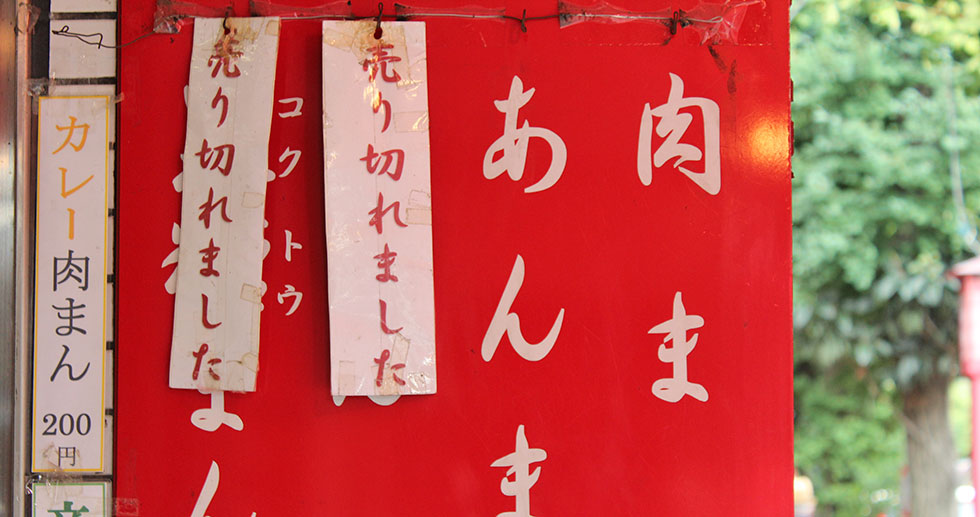 肉ま
あんま
売り切れました
コクトウ
売り切れました
まん
カレー肉まん
200
円